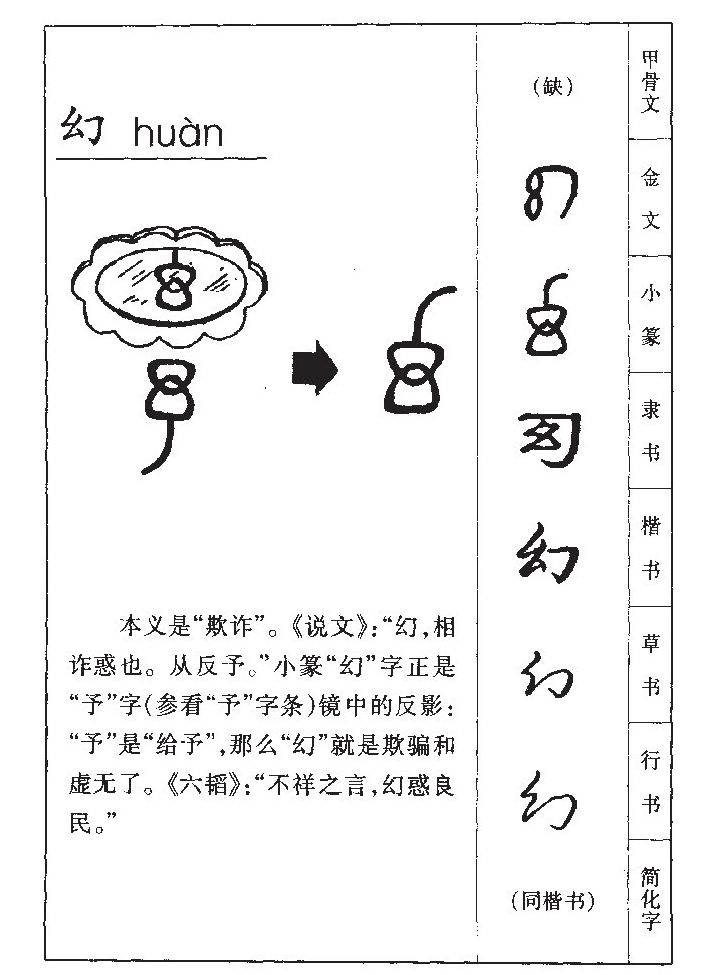 幻 huàn
本义是“欺诈”。《说文》：“幻，相
诈惑也。从反予。”小篆“幻”字正是
“予”字（参看“予”字条）镜中的反影：
“予”是“给予”，那么“幻”就是欺骗和
虚无了。《六韬》：“不祥之言，幻惑良
民。”
（缺） 甲骨文
幻 金文
幻 小篆
幻 隶书
幻 楷书
幻 草书
幻 行书
（同楷书） 简化字